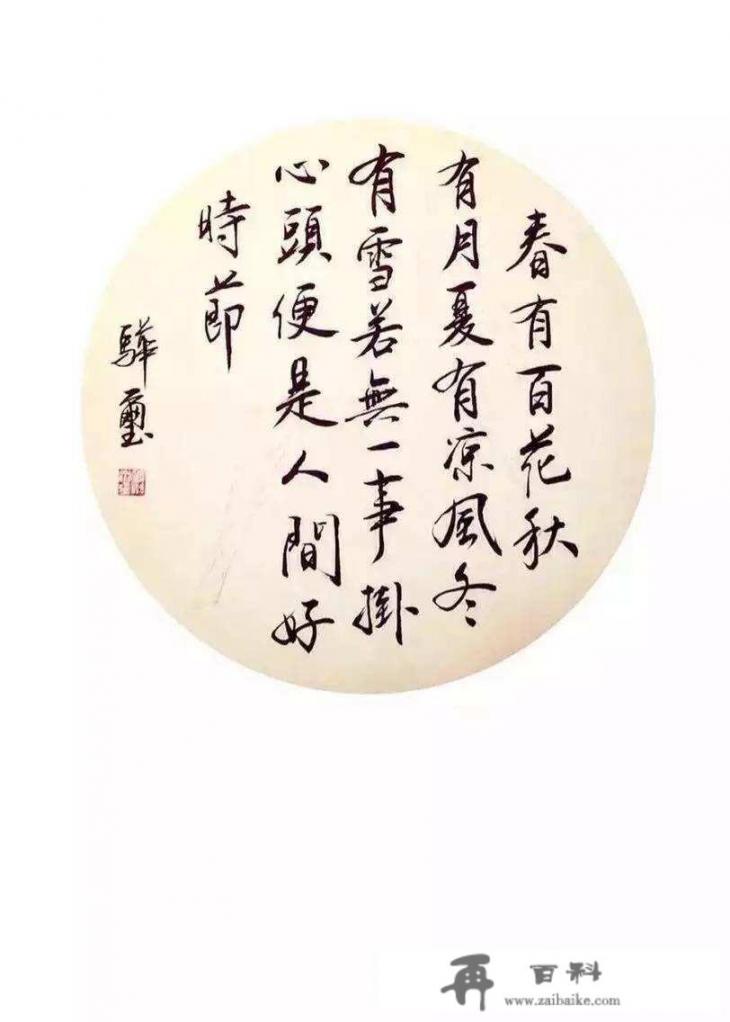 春有百花秋
有月夏有凉風冬
有雪若無一事掛
心頭便是人間好
時節
驊璽
再百科
www.zaibaike.com